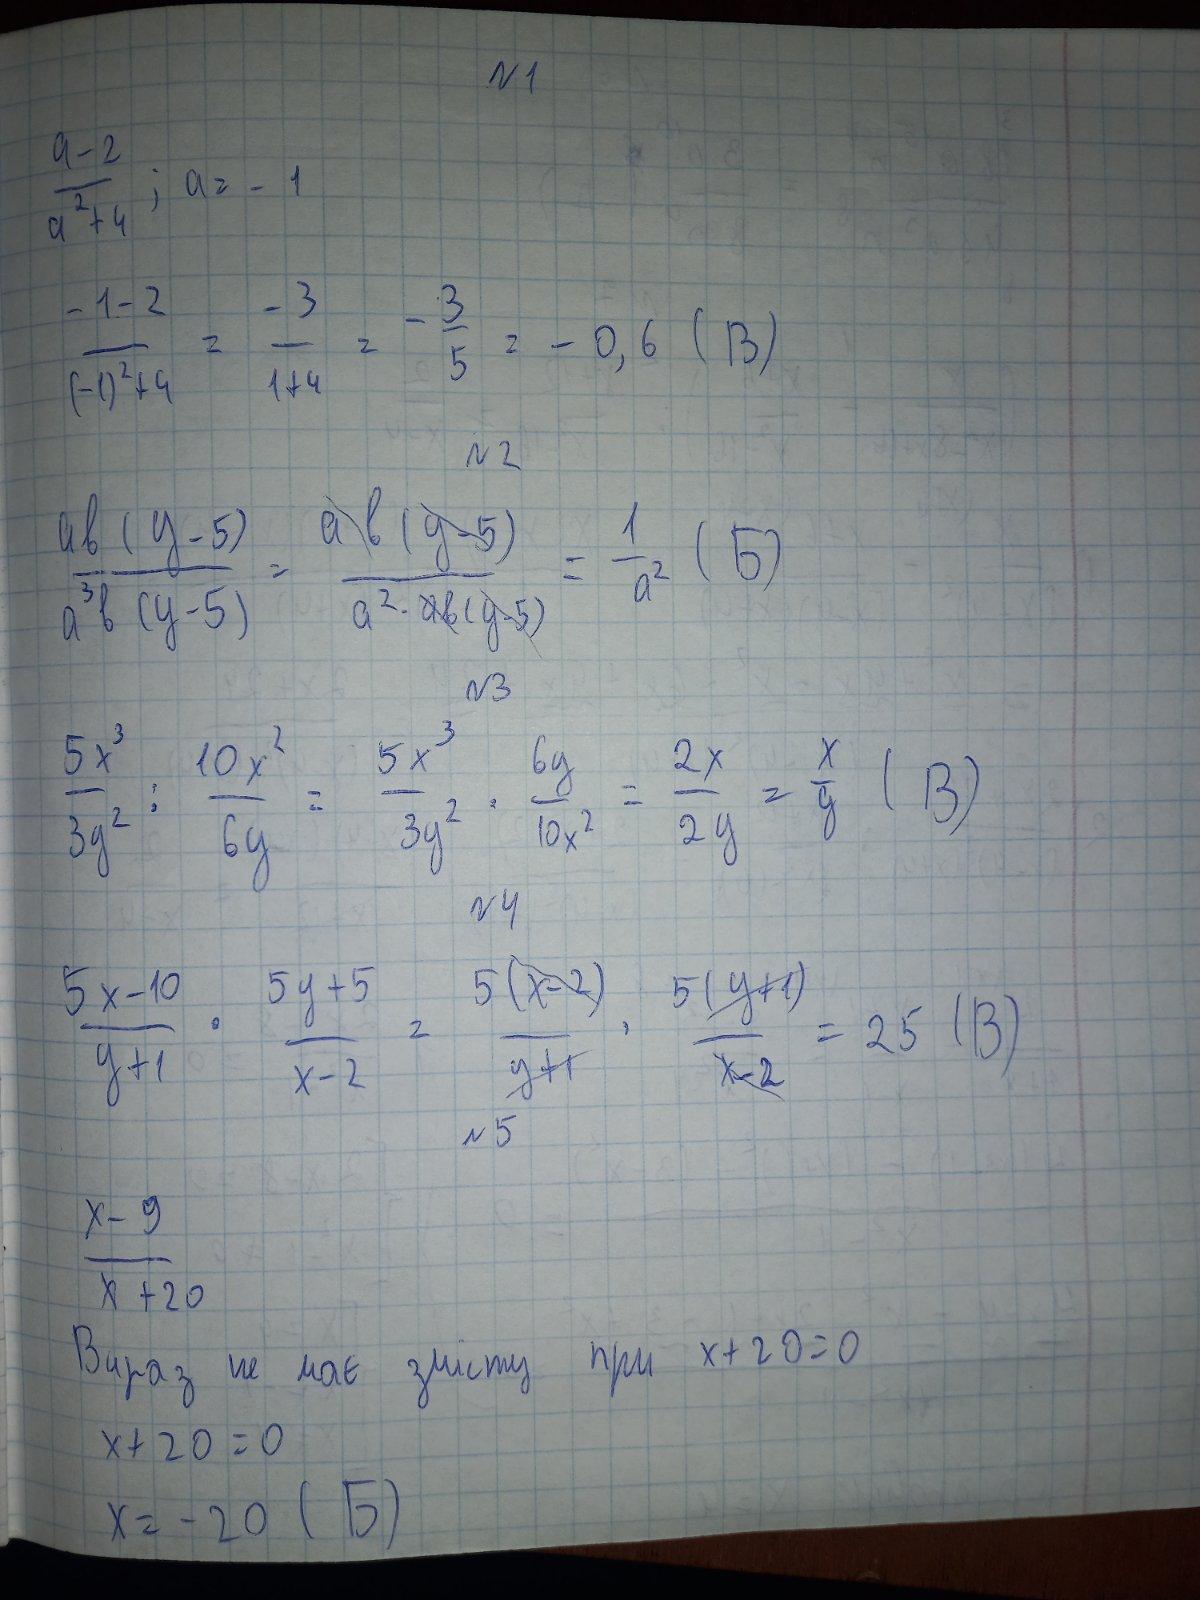 №1
(a-2)/(a²+4); a = -1
(-1-2)/((-1)²+4) = (-3)/(1+4) = -3/5 = -0,6 (В)
№2
ab(y-5)/a³b(y-5) = ab(y-5)/a²·ab(y-5) = 1/a² (Б)
№3
5x³/3y² : 10x²/6y = 5x³/3y² · 6y/10x² = 2x/2y = x/y (В)
№4
(5x-10)/(y+1) · (5y+5)/(x-2) = 5(x-2)/(y+1) · 5(y+1)/(x-2) = 25 (В)
№5
(x-9)/(x+20)
Вираз не має змісту при x+20=0
x+20=0
x=-20 (Б)